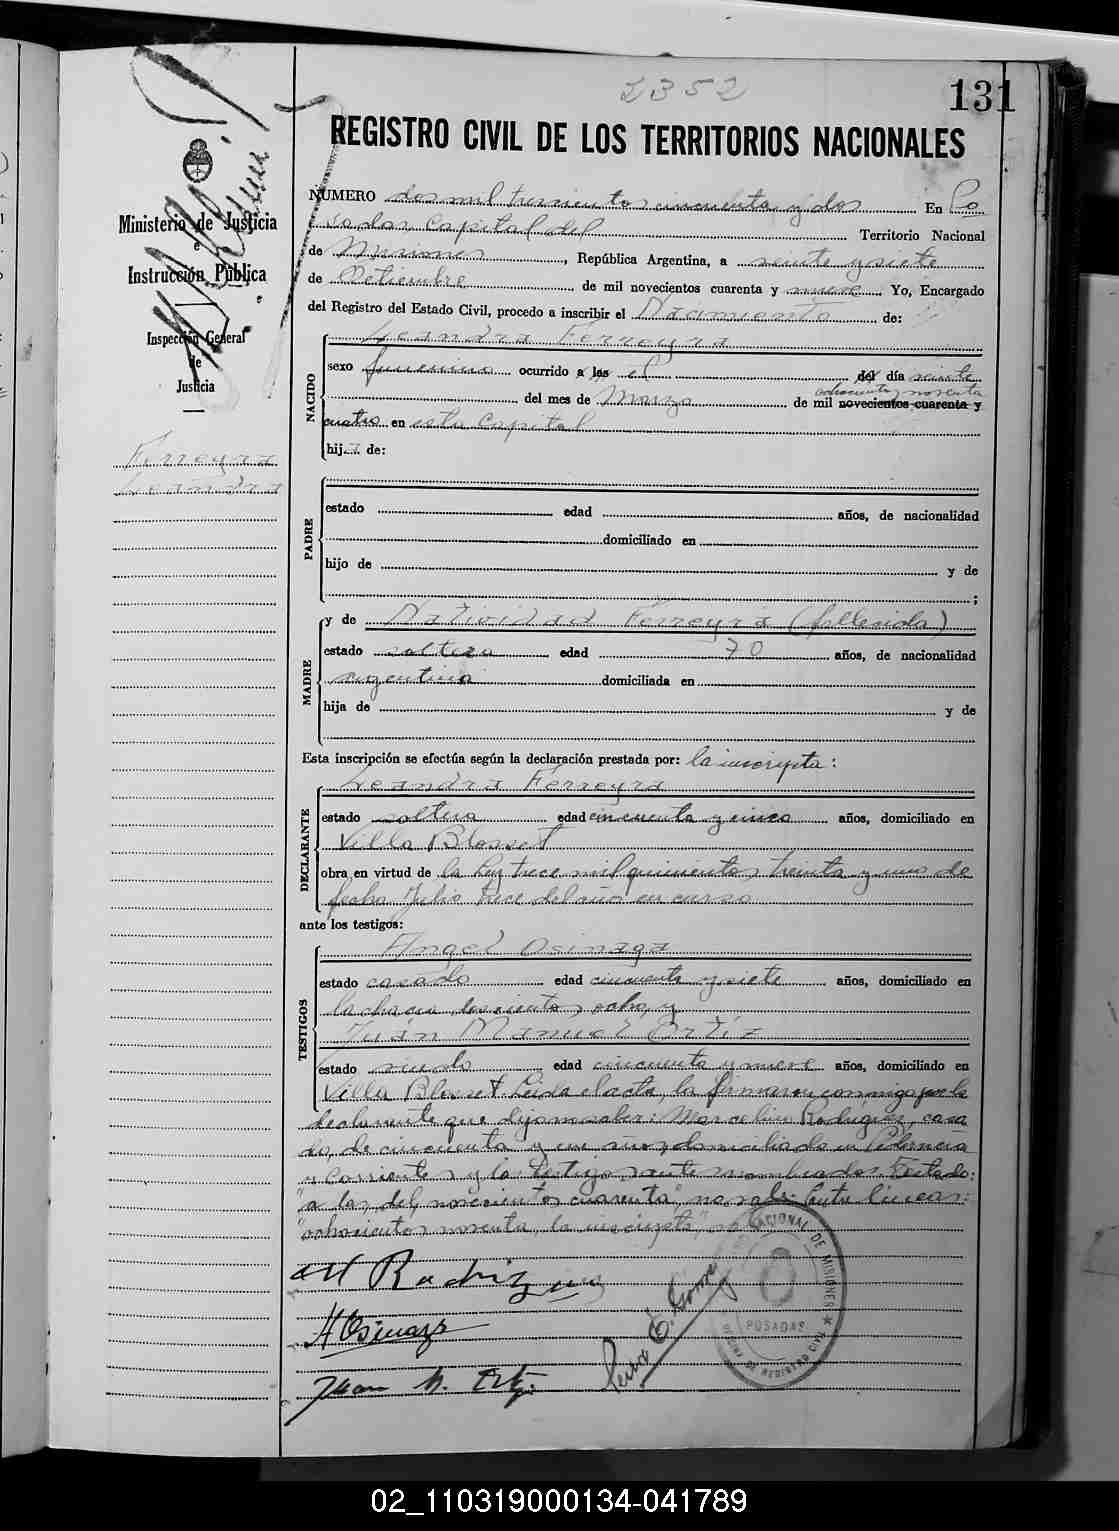 2352
131
REGISTRO CIVIL DE LOS TERRITORIOS NACIONALES
Ministerio de Justicia
e
Instrucción Pública
Inspección General
de
Justicia
Ferreyra
Leandra
NUMERO dos mil trescientos cincuenta y dos En Po
sadas Capital del Territorio Nacional
de Misiones, República Argentina, a veinte y siete
de Setiembre de mil novecientos cuarenta y nueve Yo, Encargado
del Registro del Estado Civil, procedo a inscribir el Nacimiento de:
NACIDO
Leandra Ferreyra
sexo femenino ocurrido a las el del día veinte
ochocientos noventa
del mes de Marzo de mil novecientos cuarenta y
cuatro en esta Capital
hija de:
PADRE
estado edad años, de nacionalidad
domiciliado en
hijo de y de
;
MADRE
y de Natividad Ferreyra (fallecida)
estado soltera edad 70 años, de nacionalidad
argentina domiciliada en
hija de y de
Esta inscripción se efectúa según la declaración prestada por: la inscripta:
DECLARANTE
Leandra Ferreyra
estado soltera edad cincuenta y cinco años, domiciliado en
Villa Blosset
obra en virtud de la ley trece mil quinientos treinta y uno de
fecha Julio trece del año en curso
ante los testigos:
TESTIGOS
Angel Osinaga
estado casado edad cincuenta y siete años, domiciliado en
la chacra doscientos ocho, y
Juan Manuel Ortiz
estado viudo edad cincuenta y nueve años, domiciliado en
Villa Blosset Leida el acta, la firmaron conmigo por la
declarante que dijo no saber: Marcelino Rodriguez, casa
do, de cincuenta y un años, domiciliado en
y Corrientes y los testigos ante nombrados. Testado:
"a las, del, novecientos cuarenta", no vale. Entre lineas:
"ochocientos noventa, la inscripta",
M Rodriguez
A Osinaga
Juan M. Ortiz
E. Gomez
NACIONAL DE MISIONES
POSADAS
OFICINA DE REGISTRO CIVIL
02_110319000134-041789